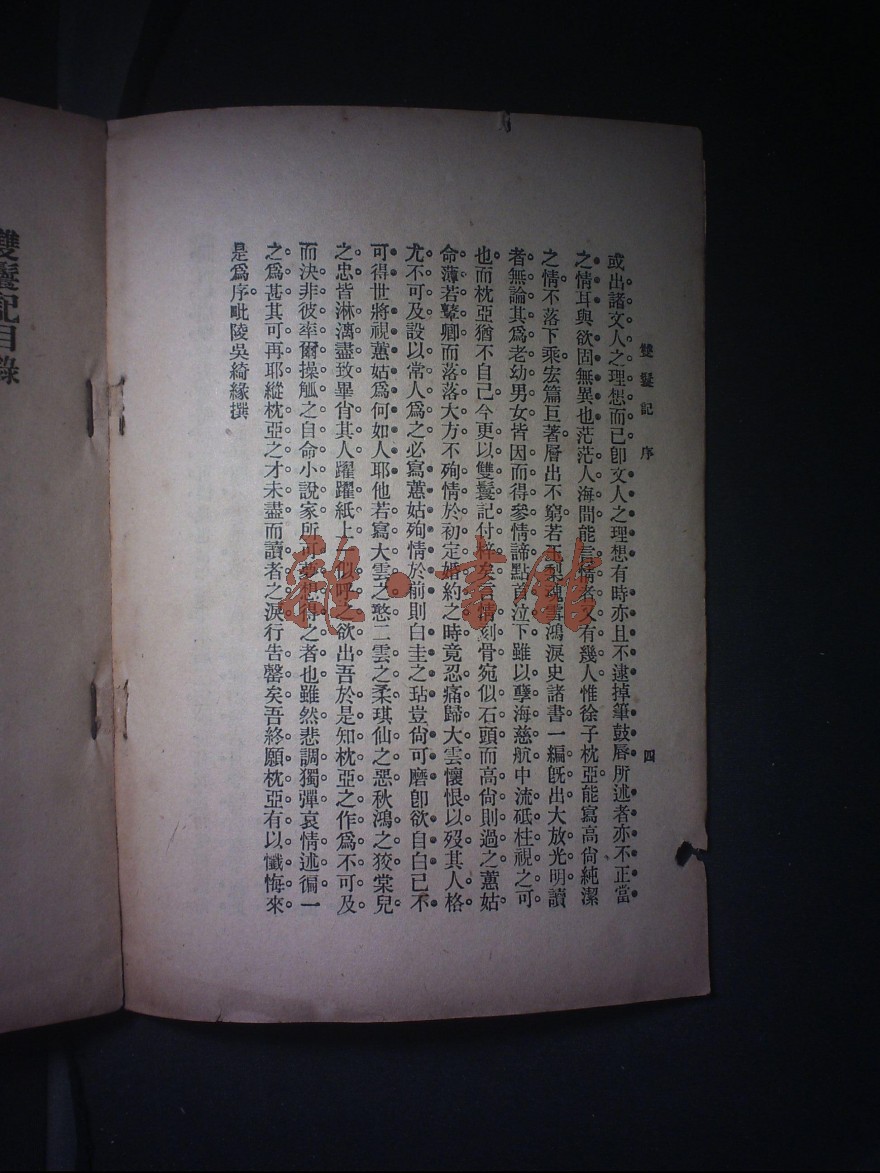 雙鬟記 序
四
或出諸文人之理想而已卽文人之理想有時亦且不逮掉筆鼓唇所述者亦不正當
之情耳與欲固無異也茫茫人海間能言情者又有幾人惟徐子枕亞能寫高尙純潔
之情不落下乘宏篇巨著層出不窮若玉梨魂雪鴻淚史諸書一編旣出大放光明讀
者無論其爲老幼男女皆因而得參情諦點首泣下雖以孽海慈航中流砥柱視之可
也而枕亞猶不自己今更以雙鬟記付梓矣言情刻骨宛似石頭而高尙則過之蕙姑
命薄若顰卿而落落大方不殉情於初定婚約之時竟忍痛歸大雲懷恨以歿其人格
尤不可及設以常人爲之必寫蕙姑殉情於前則白圭之玷豈尙可磨卽欲自白已不
可得世將視蕙姑爲何如人耶他若寫大雲之憨二雲之柔琪仙之惡秋鴻之狡棠兒
之忠皆淋漓盡致畢肖其人躍躍紙上一似呼之欲出吾於是知枕亞之作爲不可及
而決非彼率爾操觚之自命小說家所可夢想得之者也雖然悲調獨彈哀情述徧一
之爲甚其可再耶縱枕亞之才未盡而讀者之淚行告罄矣吾終願枕亞有以懺悔來
是爲序毗陵吳綺緣撰
雙鬟記目錄
雜·書館